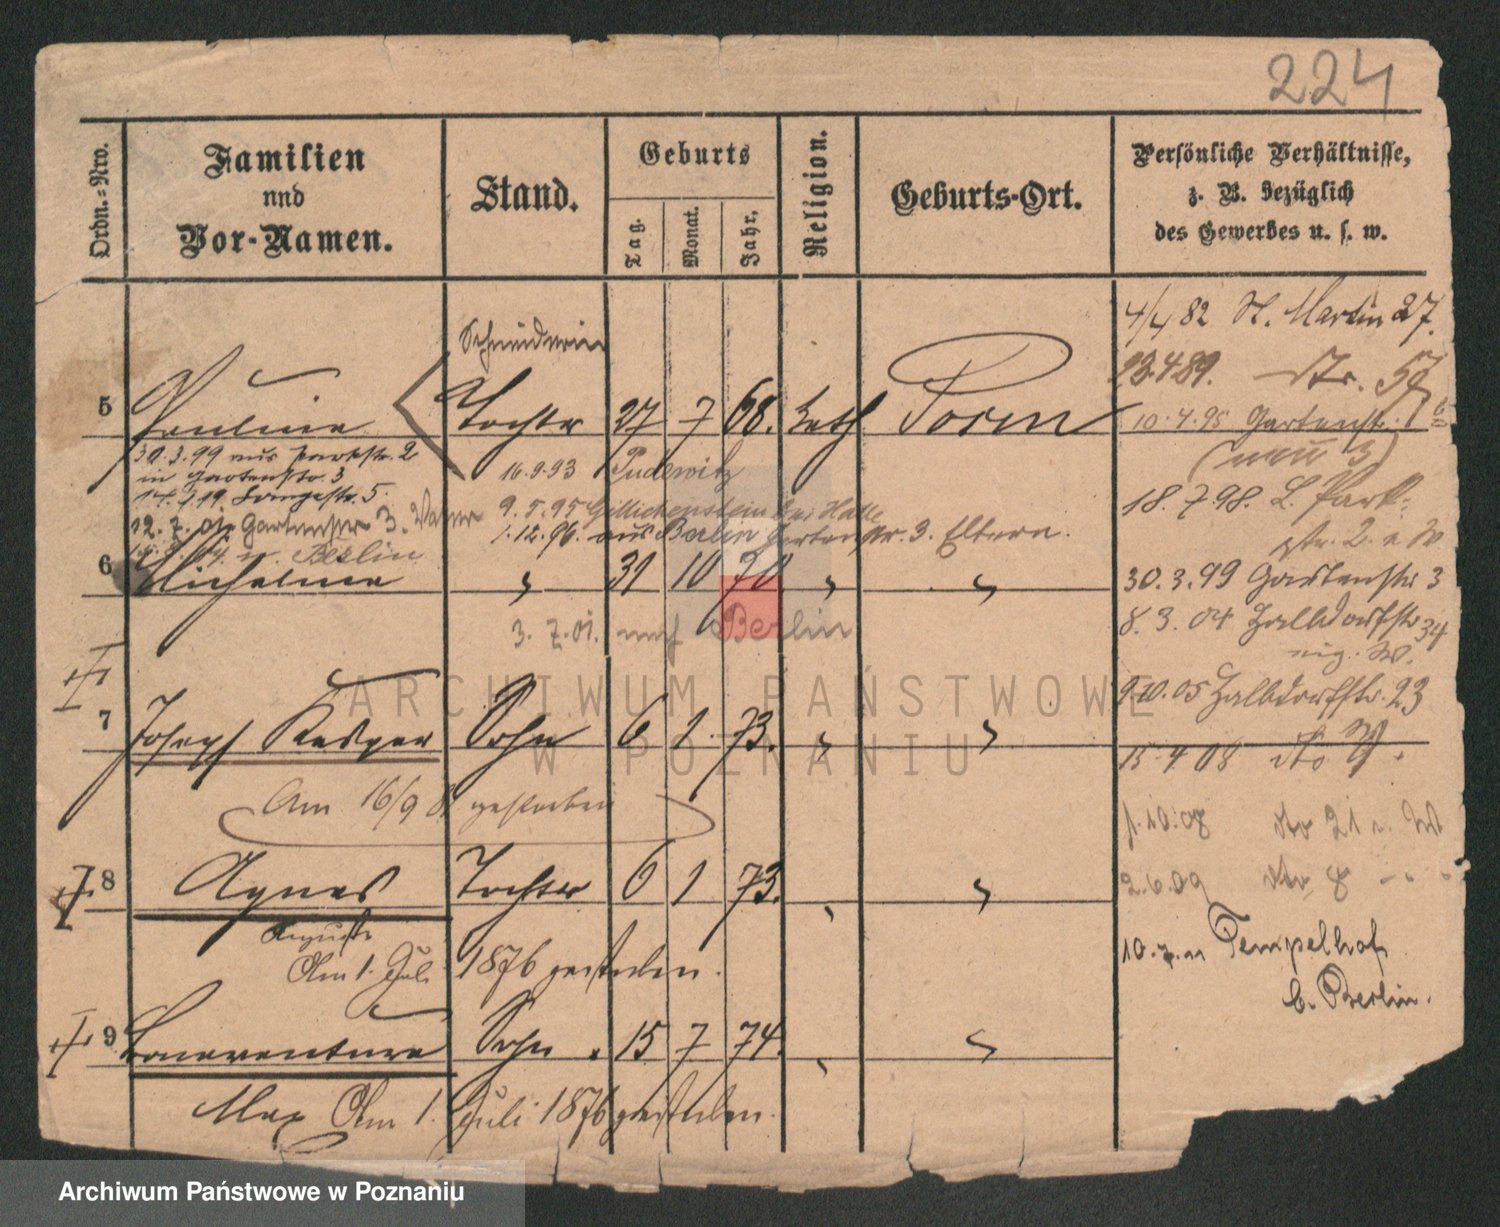 224
Ordn.-Nro.
Familien
und
Vor-Namen.
Stand.
Geburts
Tag.
Monat.
Jahr.
Religion.
Geburts-Ort.
Persönliche Verhältnisse,
z. B. bezüglich
des Gewerbes u. s. w.
4/4 82 St. Martin 27.
23.4.89. dto. 57
Schneiderin
5 Paulina Tochter 27 7 68. kath Posen
10.4.95 Gartenstr. 1
(neu 3)
30.3.99 aus Parkstr. 2
in Gartenstr. 3
Langestr. 5.
16.9.93 Pudewitz
12.7.01 Gartenstr 3. Vater
9.5.95 Giebichenstein bei Halle
1.12.96. aus Berlin Gartenstr. 3. Eltern.
v. Berlin
18.7.98. L. Park-
str. 2.
6 Michalina " 31 10 70 " "
30.3.99 Gartenstr 3
3.7.01. nach Berlin
8.3.04 Halbdorfstr 34
7 Joseph Kasper Sohn 6 1 73. " "
9.10.05 Halbdorfstr. 23
15.4.08 dto
Am 16/9 gestorben
1.10.08 dto 21
8 Agnes Tochter 6 1 73. " "
2.6.09 dto 8
Auguste
Am 1. Juli 1876 gestorben.
Tempelhof
b. Berlin.
9 Bonaventura Sohn 15 7 74. " "
Max Am 1. Juli 1876 gestorben.
ARCHIWUM PAŃSTWOWE
W POZNANIU
Archiwum Państwowe w Poznaniu